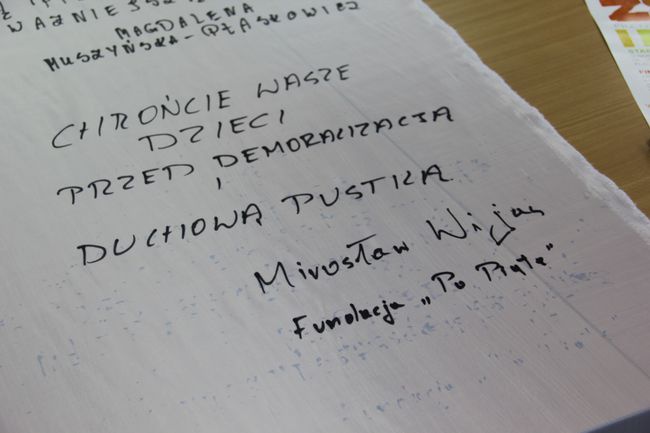 WAŻNIEJSZ
MAGDALENA
MUSZYŃSKA-PŁASKOWICZ
CHROŃCIE WASZE
DZIECI
PRZED DEMORALIZACJĄ
I
DUCHOWĄ PUSTKĄ
Mirosław Wijas
Fundacja „Po Piąte"